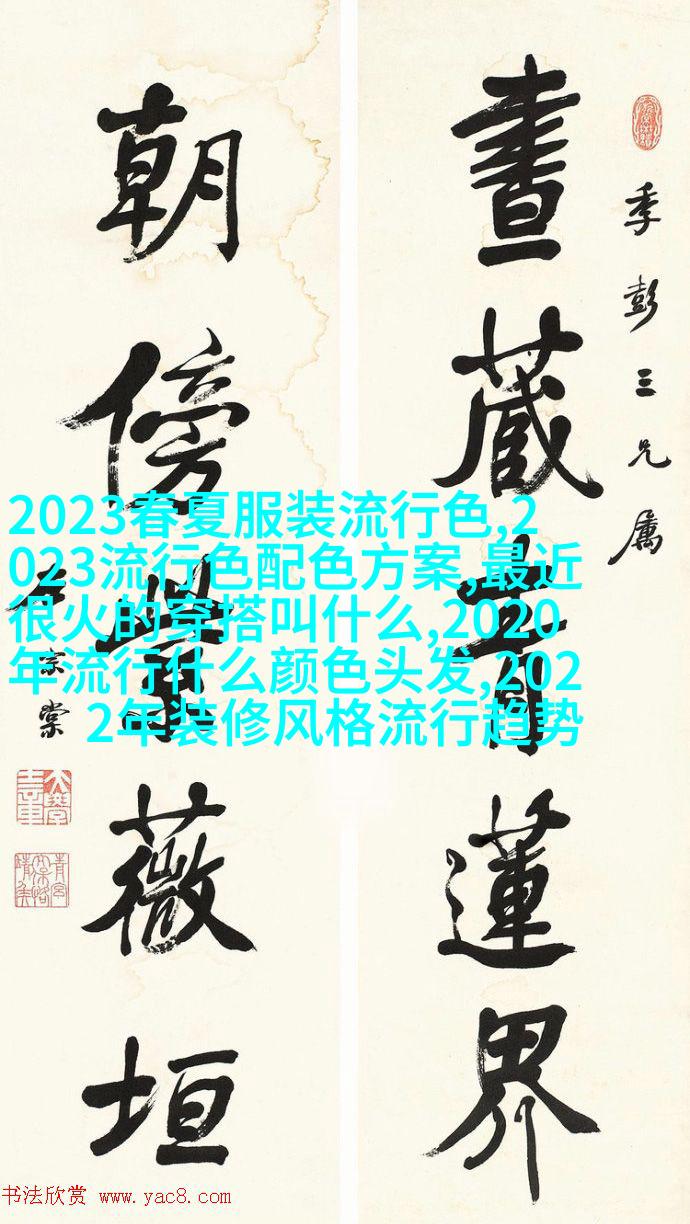 季彭三兄属
書藏青蓮界
朝傍
薇垣
左宗棠
2023春夏服装流行色,2
023流行色配色方案,最近
很火的穿搭叫什么,2020
年流行什么颜色头发,202
2年装修风格流行趋势
书法欣赏 www.yac8.com